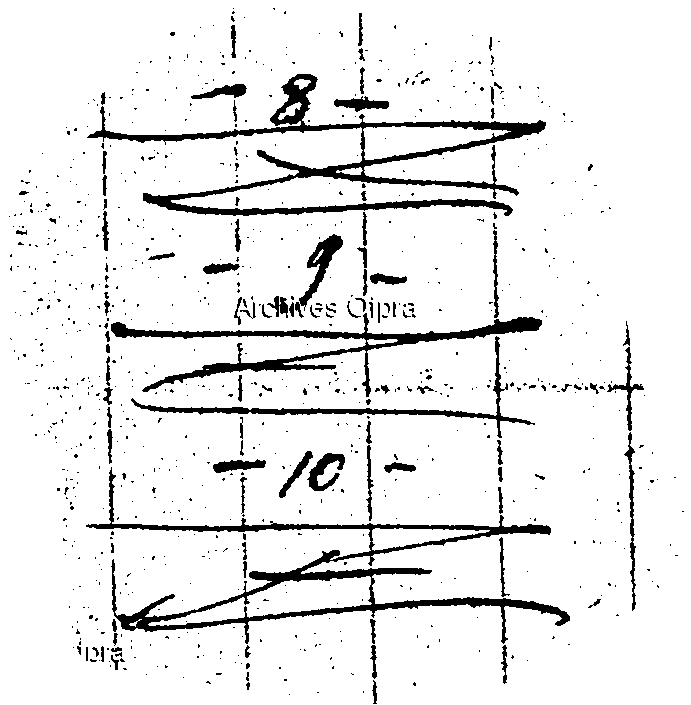 - 8 -
- 9 -
Archives Cipra
- 10 -
ipra